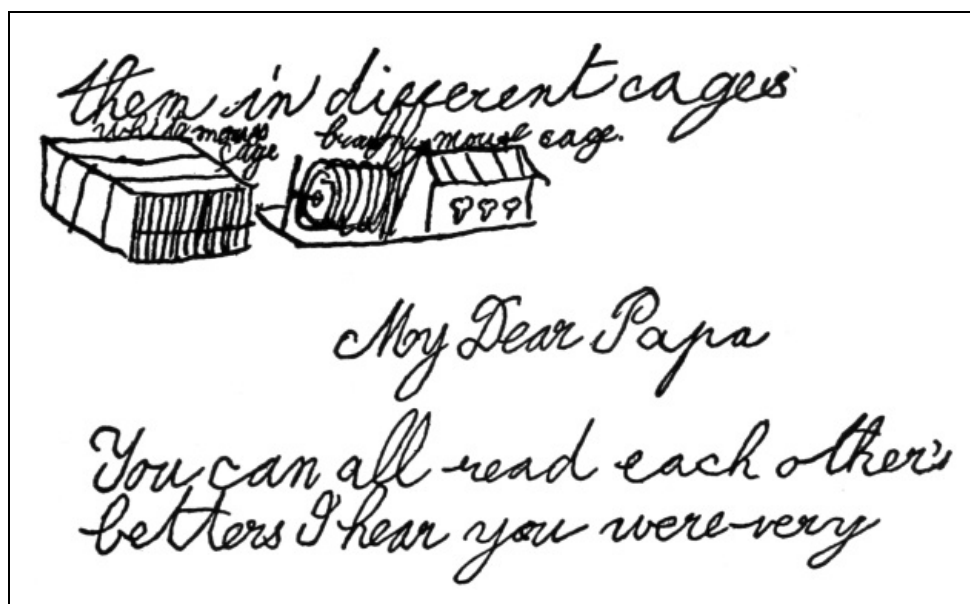 them in different cages
white mouse cage
brown mouse cage.
My Dear Papa
You can all read each other's
letters I hear you were very